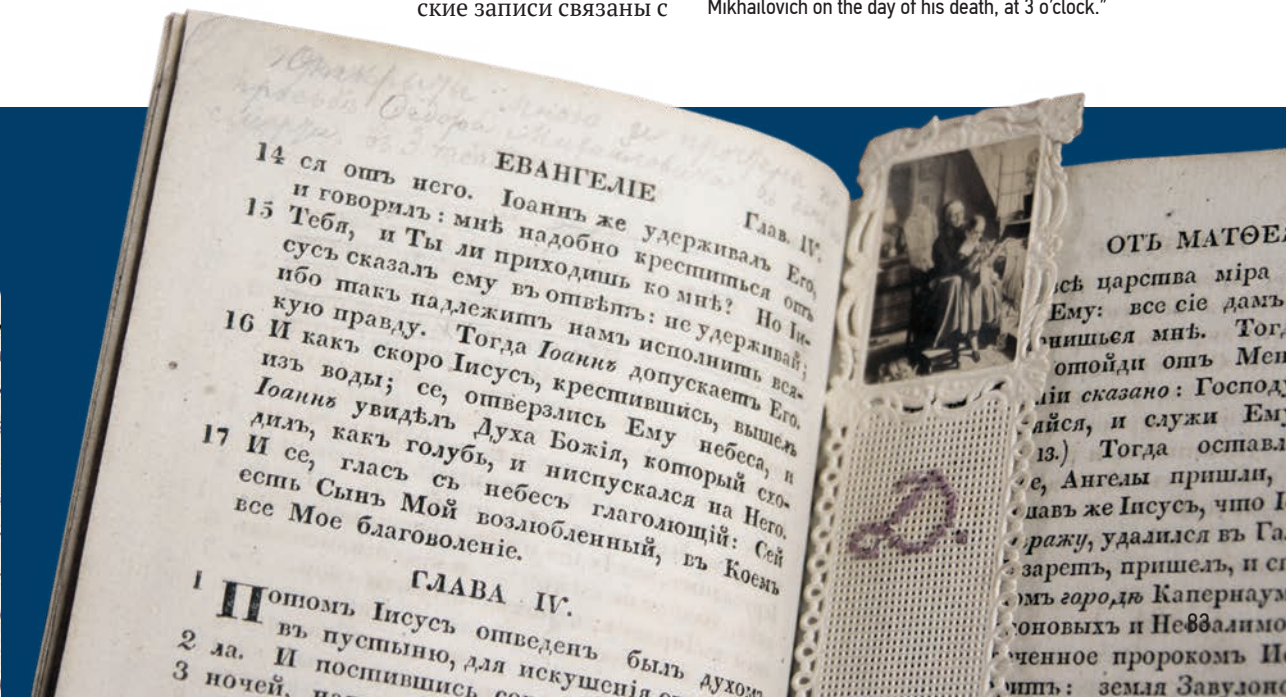 ские записи связаны с
Mikhailovich on the day of his death, at 3 o'clock."
Ѳедора Михайловича
смерти, въ 3 часа
ЕВАНГЕЛІЕ Глав. IV.
14 ся отъ него. Іоаннъ же удерживалъ Его,
и говорилъ: мнѣ надобно креститься отъ
15 Тебя, и Ты ли приходишь ко мнѣ? Но Іи-
сусъ сказалъ ему въ отвѣтъ: не удерживай;
ибо такъ надлежитъ намъ исполнить вся-
кую правду. Тогда Іоаннъ допускаетъ Его.
16 И какъ скоро Іисусъ, крестившись, вышелъ
изъ воды; се, отверзлись Ему небеса, и
Іоаннъ увидѣлъ Духа Божія, который схо-
дилъ, какъ голубь, и ниспускался на Него.
17 И се, гласъ съ небесъ глаголющій: Сей
есть Сынъ Мой возлюбленный, въ Коемъ
все Мое благоволеніе.
ГЛАВА IV.
1 Потомъ Іисусъ отведенъ былъ духомъ
въ пустыню, для искушенія
2 ла. И постившись
3 ночей,
Д
ОТЪ МАТѲЕ
всѣ царства міра
Ему: все сіе дамъ
мнѣ. Тог
отойди отъ Мен
сказано: Господ
и служи Ем
із.) Тогда оставл
Ангелы пришли,
же Іисусъ, что І
удалился въ Га
заретъ, пришелъ, и
городѣ Капернаум
и Не
83
ченное пророкомъ И
земля Завулон